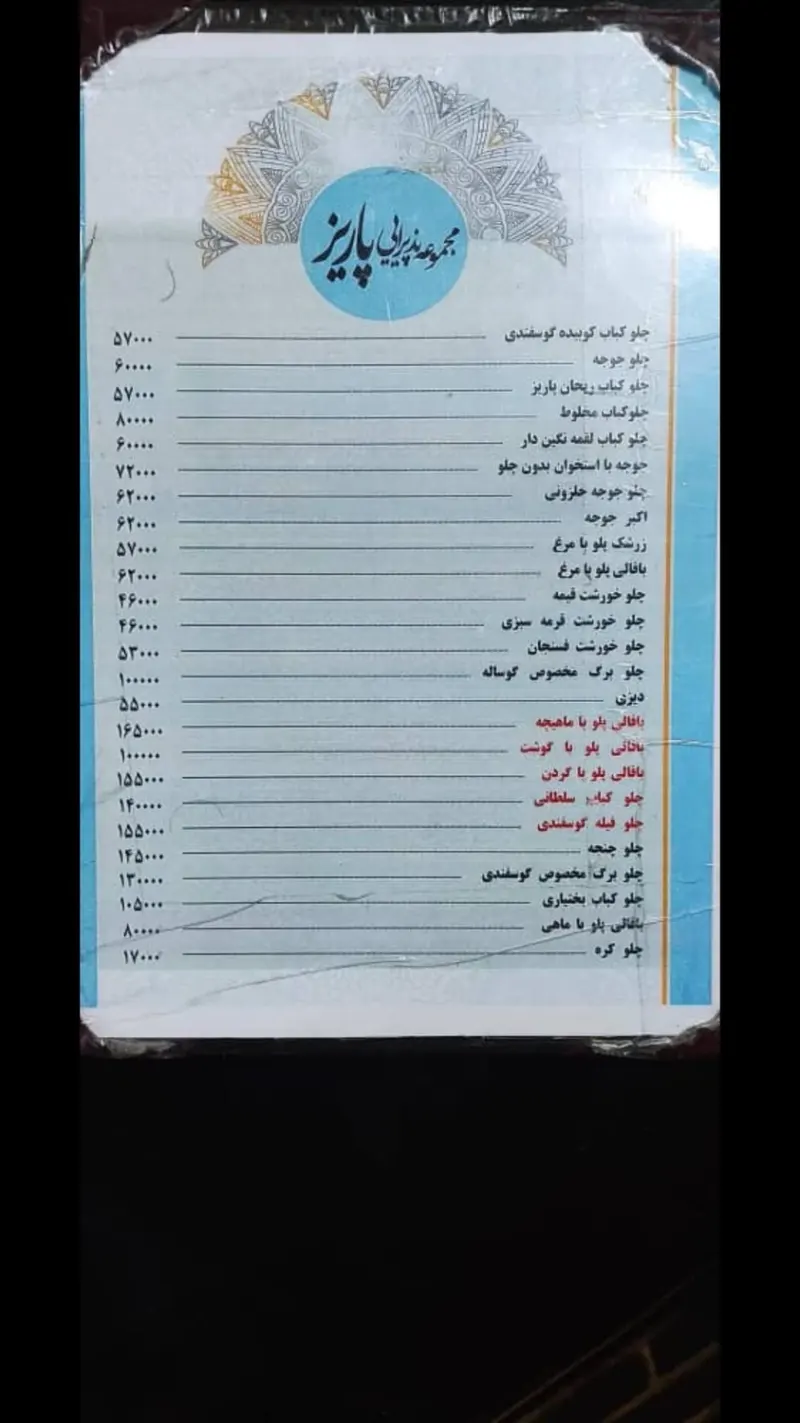 مجموعه پذیرایی پاریز
چلو کباب کوبیده گوسفندی ۵۷۰۰۰
چلو جوجه ۶۰۰۰۰
چلو کباب ریحان پاریز ۵۷۰۰۰
چلوکباب مخلوط ۸۰۰۰۰
چلو کباب لقمه نگین دار ۶۰۰۰۰
جوجه با استخوان بدون چلو ۷۲۰۰۰
چلو جوجه حلزونی ۶۲۰۰۰
اکبر جوجه ۶۲۰۰۰
زرشک پلو با مرغ ۵۷۰۰۰
باقالی پلو با مرغ ۶۲۰۰۰
چلو خورشت قیمه ۴۶۰۰۰
چلو خورشت قرمه سبزی ۴۶۰۰۰
چلو خورشت فسنجان ۵۳۰۰۰
چلو برگ مخصوص گوساله ۱۰۰۰۰۰
دیزی ۵۵۰۰۰
باقالی پلو با ماهیچه ۱۶۵۰۰۰
باقالی پلو با گوشت ۱۰۰۰۰۰
باقالی پلو با گردن ۱۵۵۰۰۰
چلو کباب سلطانی ۱۴۰۰۰۰
چلو فیله گوسفندی ۱۵۵۰۰۰
چلو چنجه ۱۴۵۰۰۰
چلو برگ مخصوص گوسفندی ۱۳۰۰۰۰
چلو کباب بختیاری ۱۰۵۰۰۰
باقالی پلو با ماهی ۸۰۰۰۰
چلو کره ۱۷۰۰۰